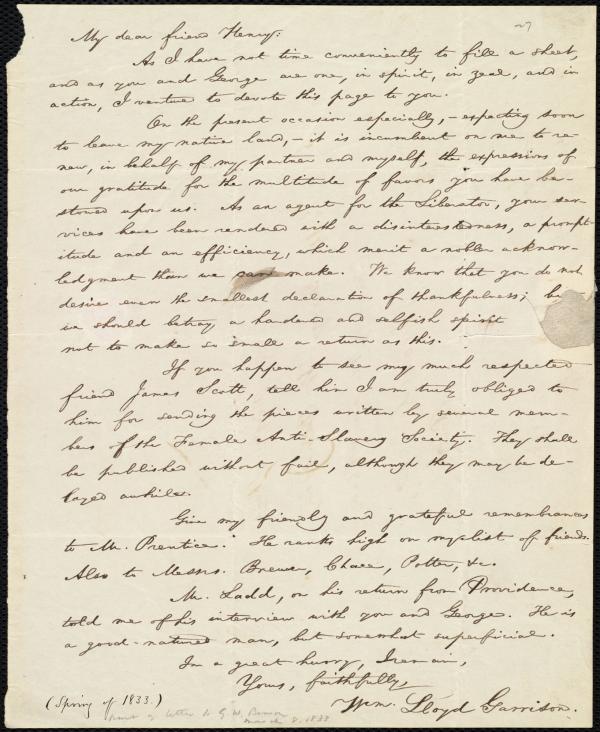 27
My dear friend Henry:
As I have not time conveniently to fill a sheet,
and as you and George are one, in spirit, in zeal, and in
action, I venture to devote this page to you.
On the present occasion especially,—expecting soon
to leave my native land,—it is incumbent on me to re-
new, in behalf of my partner and myself, the expressions of
our gratitude for the multitude of favors you have be-
stowed upon us. As an agent for the Liberator, your ser-
vices have been rendered with a disinterestedness, a prompt-
itude and an efficiency, which merit a nobler acknow-
ledgment than we can make. We know that you do not
desire even the smallest declaration of thankfulness; but
we should betray a hardened and selfish spirit
not to make so small a return as this.
If you happen to see my much respected
friend James Scott, tell him I am truly obliged to
him for sending the pieces written by several mem-
bers of the Female Anti-Slavery Society. They shall
be published without fail, although they may be de-
layed awhile.
Give my friendly and grateful remembrances
to Mr. Prentice. He ranks high on my list of friends.
Also to Messrs. Brewer, Chace, Potter, &c.
Mr. Ladd, on his return from Providence,
told me of his interview with you and George. He is
a good-natured man, but somewhat superficial.
In a great hurry, I remain,
Yours, faithfully,
Wm. Lloyd Garrison.
(Spring of 1833.)
part of letter to G W. Benson
March 8, 1833